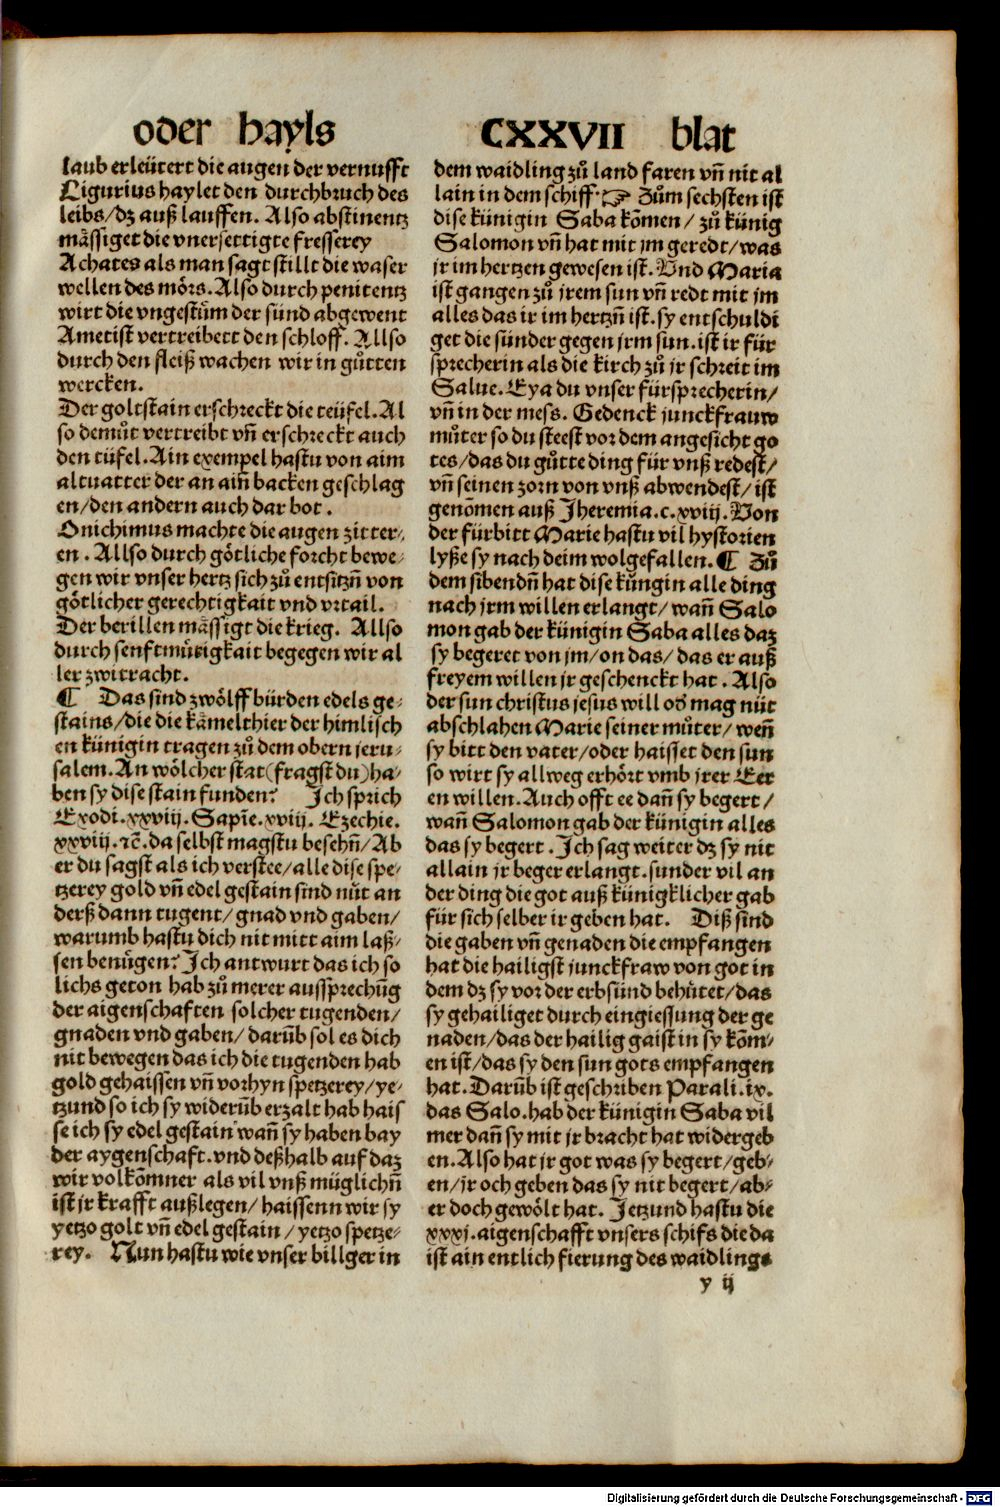 oder hayls
CXXVII blat
laub erleütert die augen der vernufft
Ligurius haylet den durchbruch des
leibs/dz auß lauffen. Also abstinentz
mässiget die vnersettigte fresserey
Achates als man sagt stillt die waser
wellen des mörs. Also durch penitentz
wirt die vngestům der sünd abgewent
Ametist vertreibett den schloff. Allso
durch den fleiß wachen wir in gůtten
wercken.
Der goltstain erschreckt die teüfel. Al
so demůt vertreibt vñ erschreckt auch
den tüfel. Ain exempel hastu von aim
altuatter der an aiñ backen geschlag
en/den andern auch dar bot.
Onichimus machte die augen zitter⸗
en. Allso durch götliche forcht bewe⸗
gen wir vnser hertz sich zů entsitzñ von
götlicher gerechtigkait vnd vrtail.
Der berillen mässigt die krieg. Allso
durch senftmůtigkait begegen wir al
ler zwitracht.
¶ Das sind zwölff bürden edels ge⸗
stains/die die kämelthier der himlisch
en künigin tragen zů dem obern jeru⸗
salem. An wölcher stat (fragst du) ha⸗
ben sy dise stain funden? Ich sprich
Exodi. xxviij. Sapīe. xviij. Ezechie.
xxviij. ⁊c̄. da selbst magstu besehñ/Ab
er du sagst als ich verstee/alle dise spe⸗
tzerey gold vñ edel gestain sind nüt an
derß dann tugent/gnad vnd gaben/
warumb hastu dich nit mitt aim laß⸗
sen benügen? Ich antwurt das ich so
lichs geton hab zů merer aussprechūg
der aigenschaften solcher tugenden/
gnaden vnd gaben/darūb sol es dich
nit bewegen das ich die tugenden hab
gold gehaissen vñ vorhyn spetzerey/ye⸗
tzund so ich sy widerūb erzalt hab hais
se ich sy edel gestain wañ sy haben bay
der aygenschaft. vnd deßhalb auf daz
wir volkōmner als vil vnß müglichñ
ist jr krafft außlegen/haissenn wir sy
yetzo golt vñ edel gestain/yetzo spetze⸗
rey. Nun hastu wie vnser billger in
dem waidling zů land faren vñ nit al
lain in dem schiff. ☞ Zům sechsten ist
dise künigin Saba kōmen/zů künig
Salomon vñ hat mit jm geredt/was
jr im hertzen gewesen ist. Vnd Maria
ist gangen zů jrem sun vñ redt mit jm
alles das ir im hertzñ ist. sy entschuldi
get die sünder gegen jrm sun. ist ir für
sprecherin als die kirch zů jr schreit im
Salue. Eya du vnser fürsprecherin/
vñ in der mess. Gedenck junckfrauw
můter so du steest vor dem angesicht go
tes/das du gůtte ding für vnß redest/
vñ seinen zorn von vnß abwendest/ist
genōmen auß Jheremia. c. xviij. Von
der fürbitt Marie hastu vil hystorien
lyße sy nach deim wolgefallen. ¶ Zů
dem sibendñ hat dise küngin alle ding
nach jrm willen erlangt/wañ Salo
mon gab der künigin Saba alles daz
sy begeret von jm/on das/das er auß
freyem willen jr geschenckt hat. Also
der sun christus jesus will od̄ mag nüt
abschlahen Marie seiner můter/weñ
sy bitt den vater/oder haisset den sun
so wirt sy allweg erhört vmb jrer Eer
en willen. Auch offt ee dañ sy begert/
wañ Salomon gab der künigin alles
das sy begert. Ich sag weiter dz sy nit
allain jr beger erlangt. sunder vil an
der ding die got auß künigklicher gab
für sich selber ir geben hat. Diß sind
die gaben vñ genaden die empfangen
hat die hailigst junckfraw von got in
dem dz sy vor der erbsünd behütet/das
sy gehailiget durch eingiessung der ge
naden/das der hailig gaist in sy kōm⸗
en ist/das sy den sun gots empfangen
hat. Darūb ist geschriben Parali. ix.
das Salo. hab der künigin Saba vil
mer dañ sy mit jr bracht hat widergeb
en. Also hat jr got was sy begert/geb⸗
en/jr och geben das sy nit begert/ab⸗
er doch gewölt hat. Jetzund hastu die
xxxj. aigenschafft vnsers schifs die da
ist ain entlich fierung des waidlings
y ij
Digitalisierung gefördert durch die Deutsche Forschungsgemeinschaft - DFG